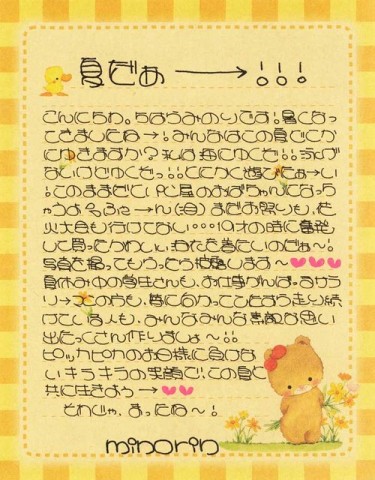 夏だぁ――→！！！
こんにちわ。ちはらみのりです。暑くなっ
てきましたね→！みんなはこの夏どこか
にゆきますか？私は海にゆくぞ！！泳げ
ないけどゆくぞっ！！とにかく遊びたぁ→い
！このままだと、PC屋のおばちゃんになっち
ゃうよぉふぇ→ん（泣）まだお祭りも、花
火大会も行けてない・・・・19才の時に奮発
して買ったかわいい浴衣を着たいのだぁ〜！
写真を撮ってもらったら披露します〜
夏休み中の学生さんも、お仕事がんばるサラ
リ→マンの方も、夢に向かってひたすら走り続
けている人も、みんなみんな素敵な思い
出たっくさん作りましょ〜！！
ピッカピカのお日様に負けな
いキラキラの笑顔で、この夏と
共に生きよう→
それじゃ、まったね〜！
minorin